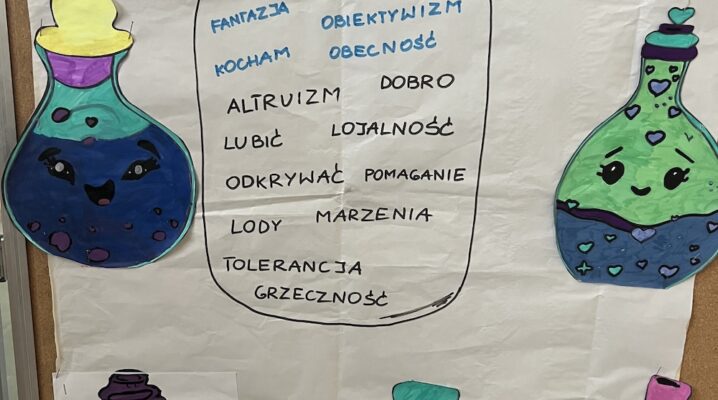 FANTAZJA OBIEKTYWIZM
KOCHAM OBECNOŚĆ
ALTRUIZM DOBRO
LUBIĆ LOJALNOŚĆ
ODKRYWAĆ POMAGANIE
LODY MARZENIA
TOLERANCJA
GRZECZNOŚĆ